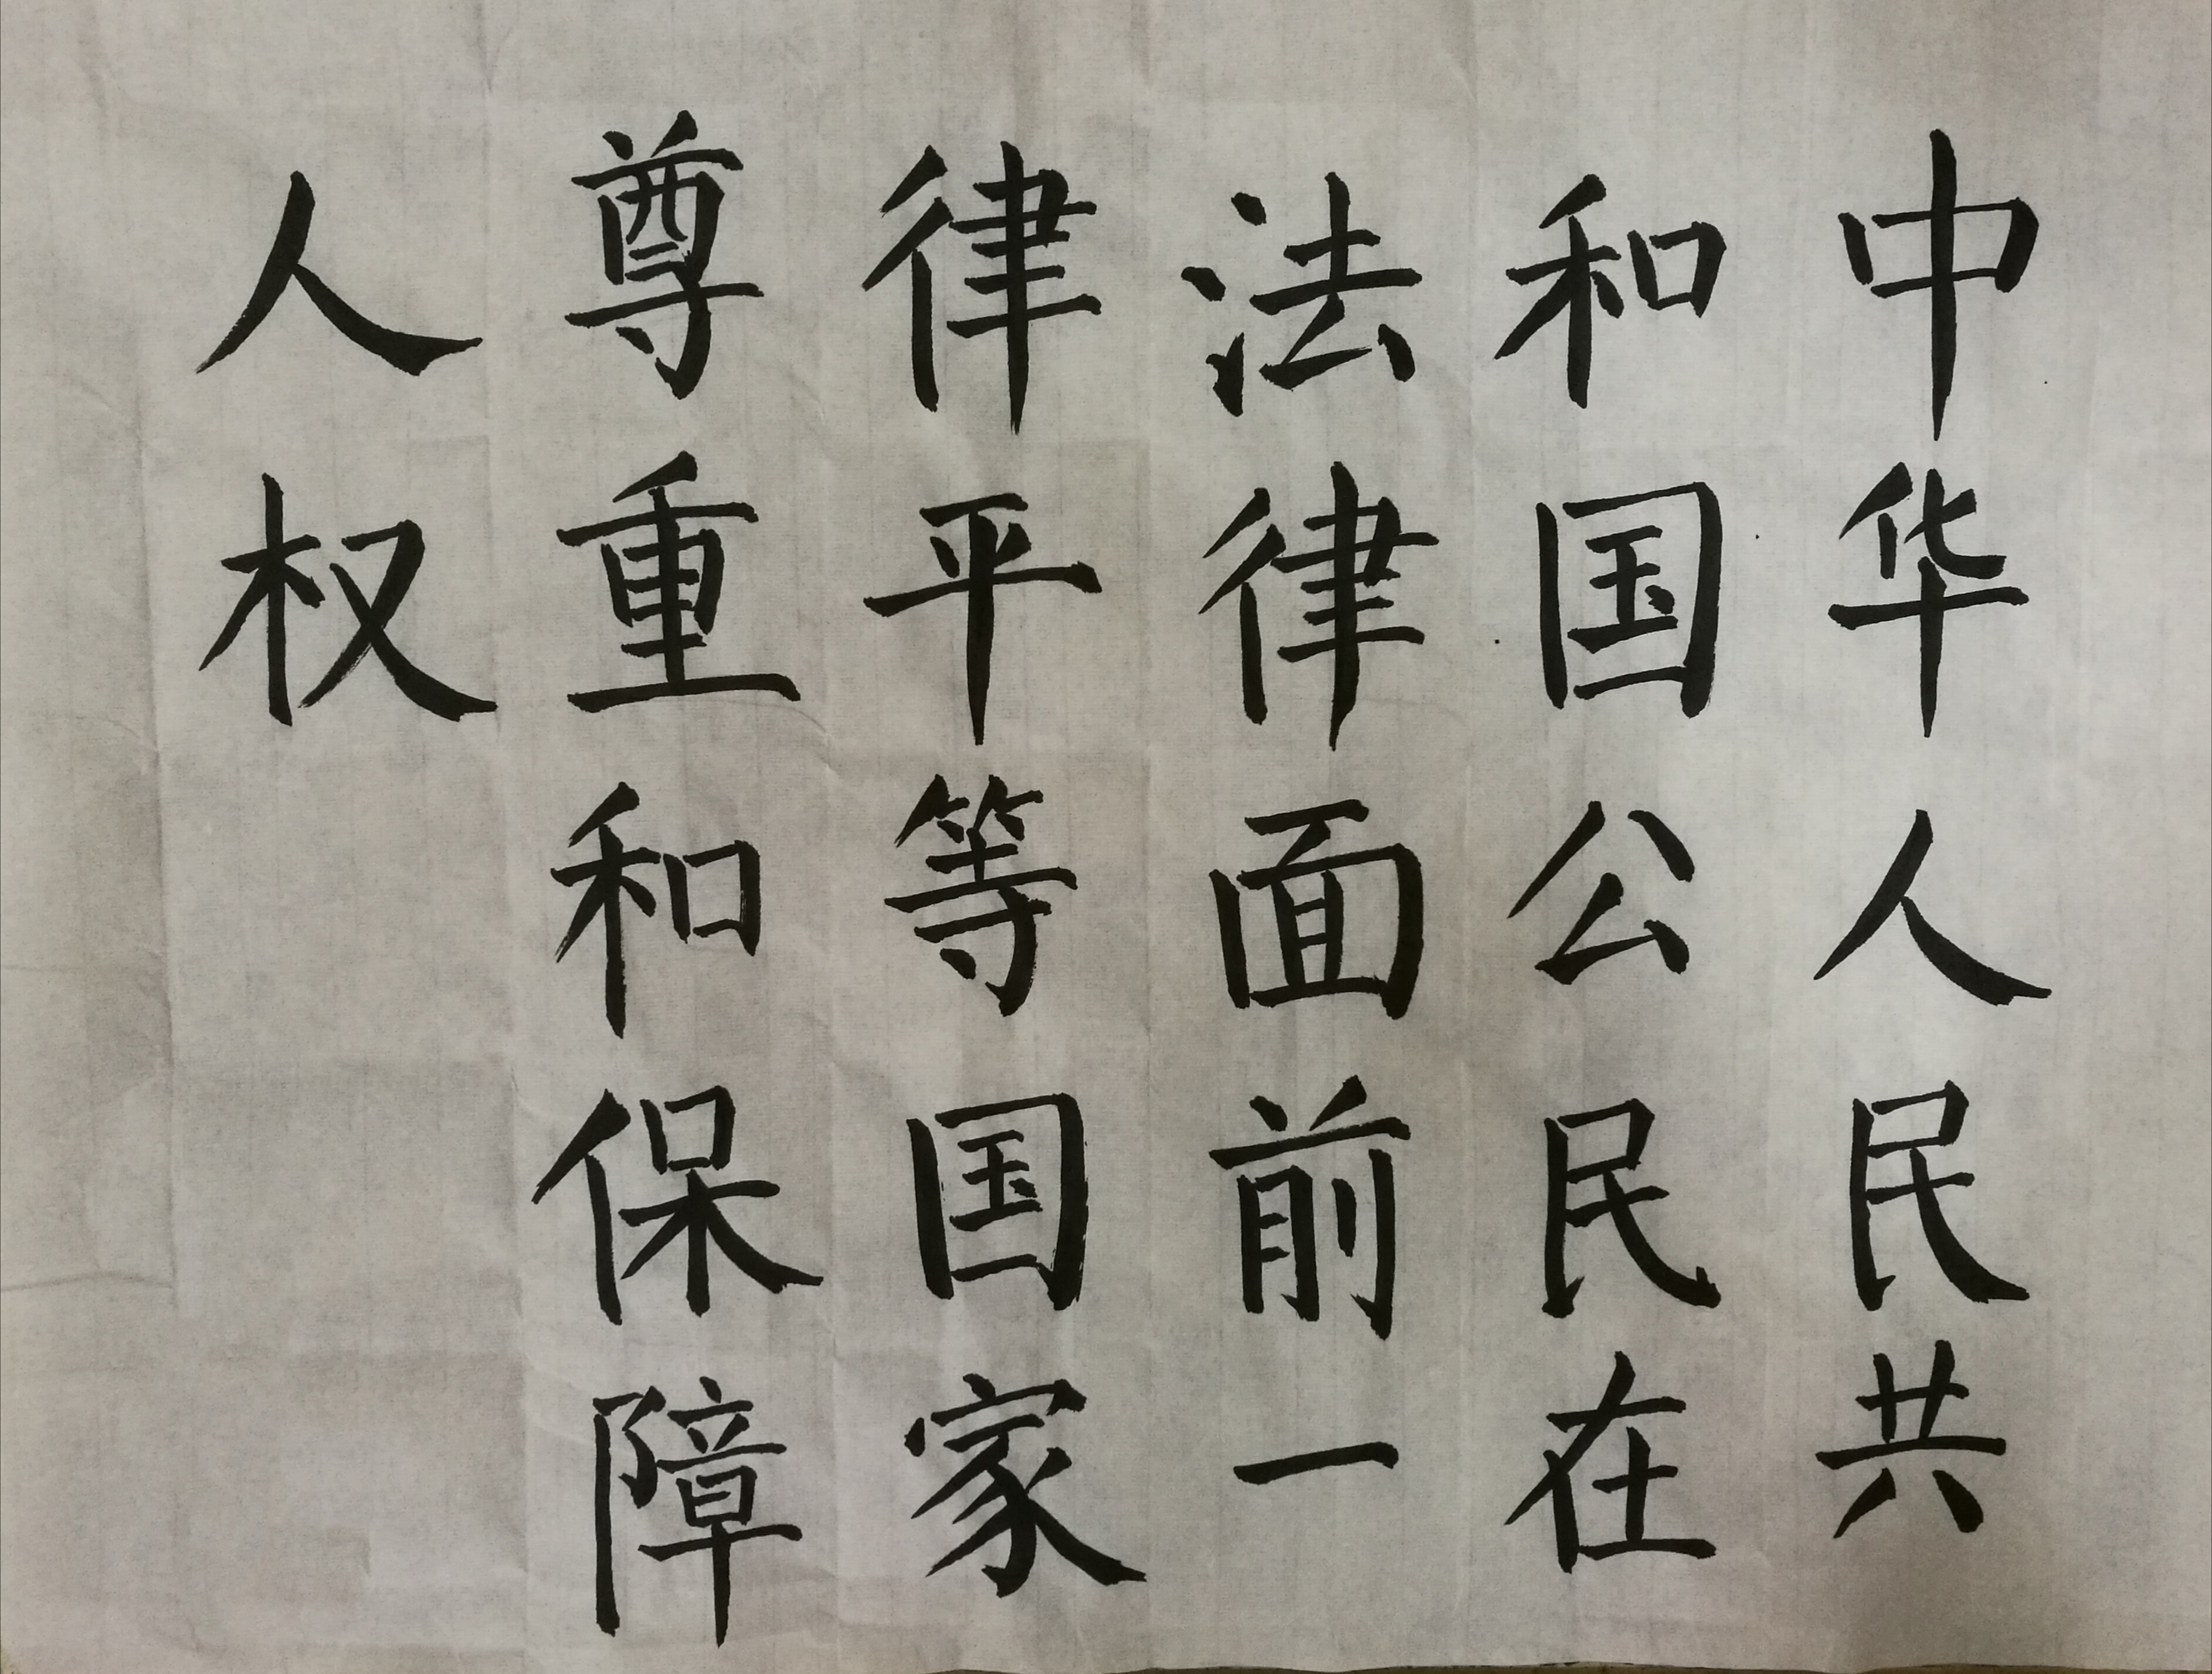 中华人民共
和国公民在
法律面前一
律平等国家
尊重和保障
人权